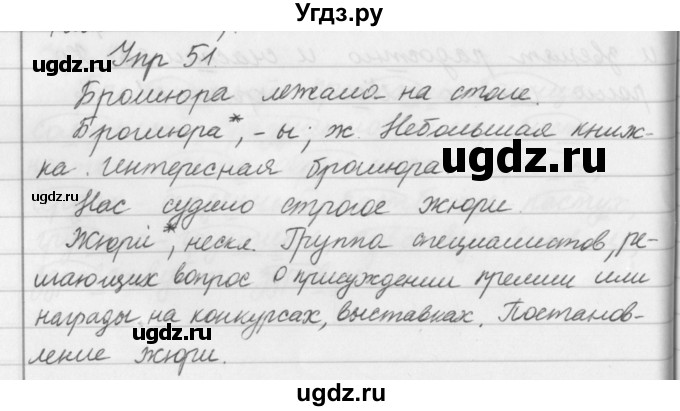 Угдз.ру
Упр 51
Брошюра лежала на столе.
Брошюра*, -ы; ж. Небольшая книж-
ка. Интересная брошюра
угдз.ру
Нас судило строгое жюри.
угдз.ру
Жюри*, нескл. Группа специалистов, ре-
шающих вопрос о присуждении премии или
награды на конкурсах, выставках. Постанов-
угдз.ру
ление жюри.
ugdz.ru
ugdz.ru
ugdz.ru
ugdz.ru
Угдз.ру